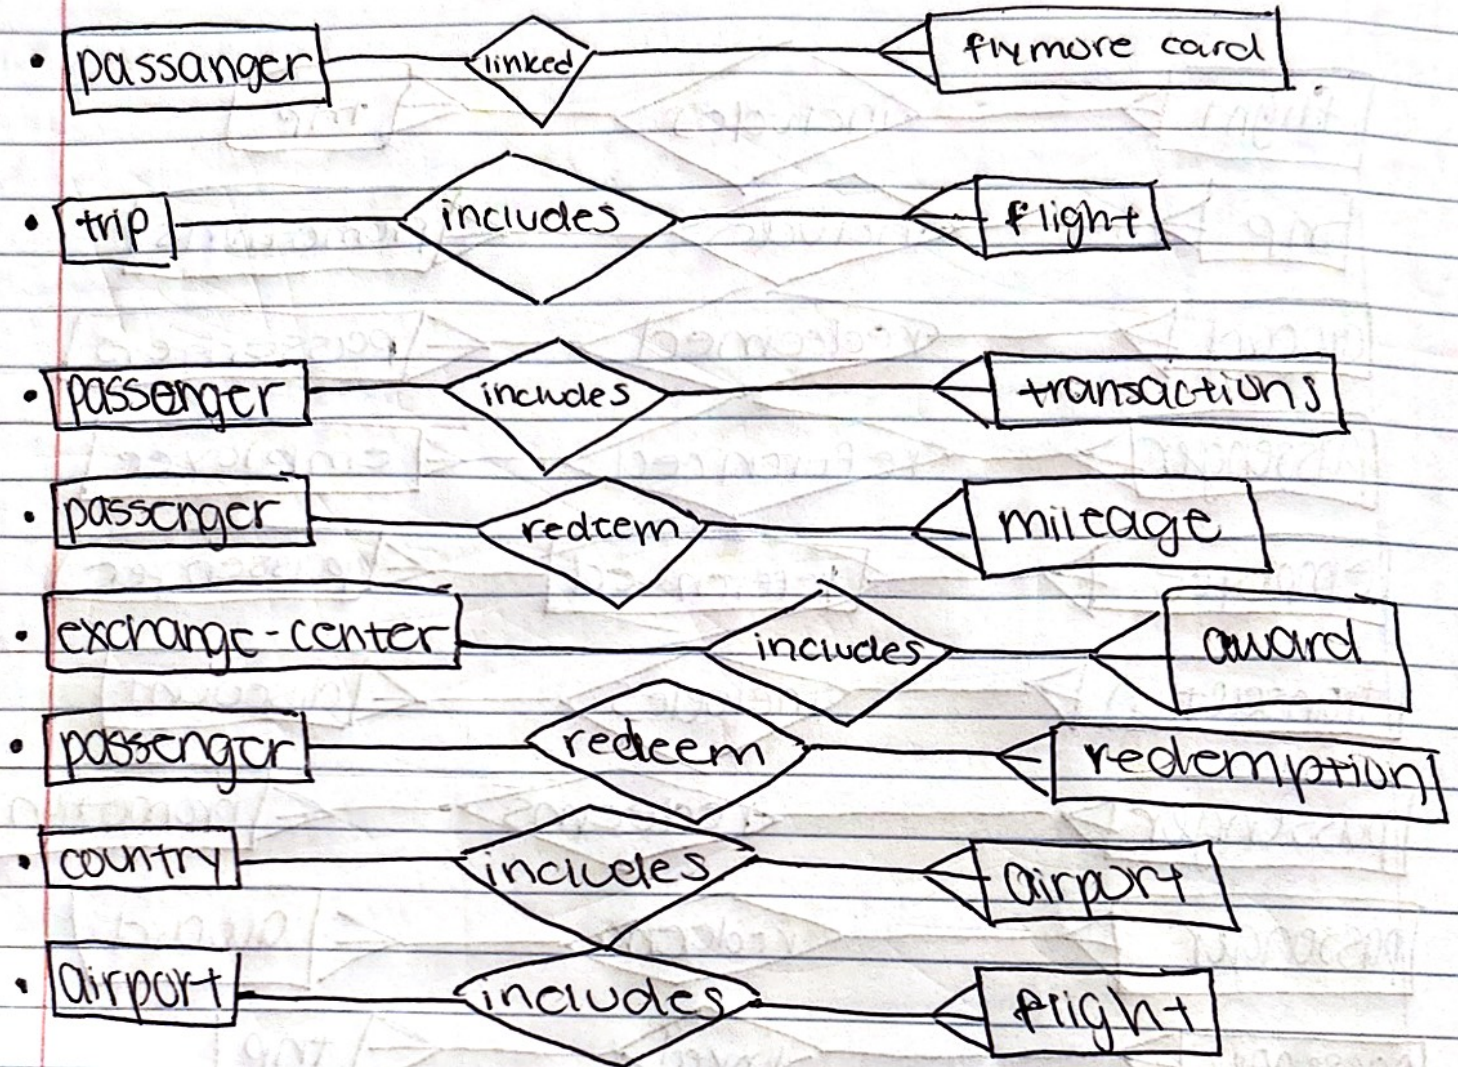 passanger linked flymore card
trip includes flight
passenger includes transactions
passenger redeem mileage
exchange-center includes award
passenger redeem redemption
country includes airport
airport includes flight